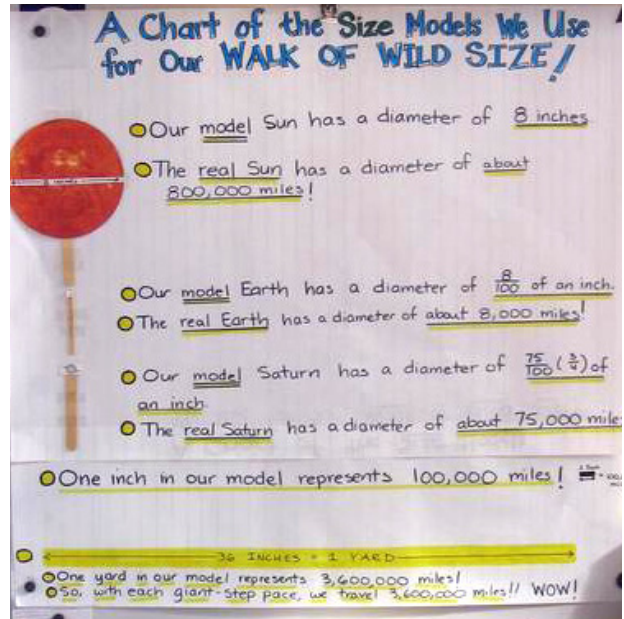 A Chart of the Size Models We Use
for Our WALK OF WILD SIZE!
Our model Sun has a diameter of 8 inches
The real Sun has a diameter of about
800,000 miles!
Our model Earth has a diameter of 8/100 of an inch.
The real Earth has a diameter of about 8,000 miles!
Our model Saturn has a diameter of 75/100 (3/4) of
an inch
The real Saturn has a diameter of about 75,000 mile
One inch in our model represents 100,000 miles!
36 INCHES = 1 YARD
One yard in our model represents 3,600,000 miles!
So, with each giant-step pace, we travel 3,600,000 miles!! WOW!